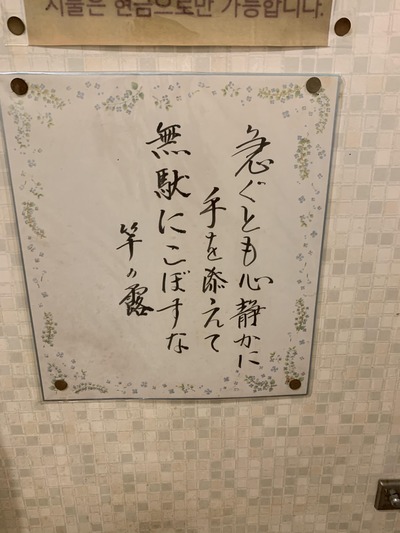 지불은 현금으로만 가능합니다.
急ぐとも心静かに
手を添えて
無駄にこぼすな
竿の露